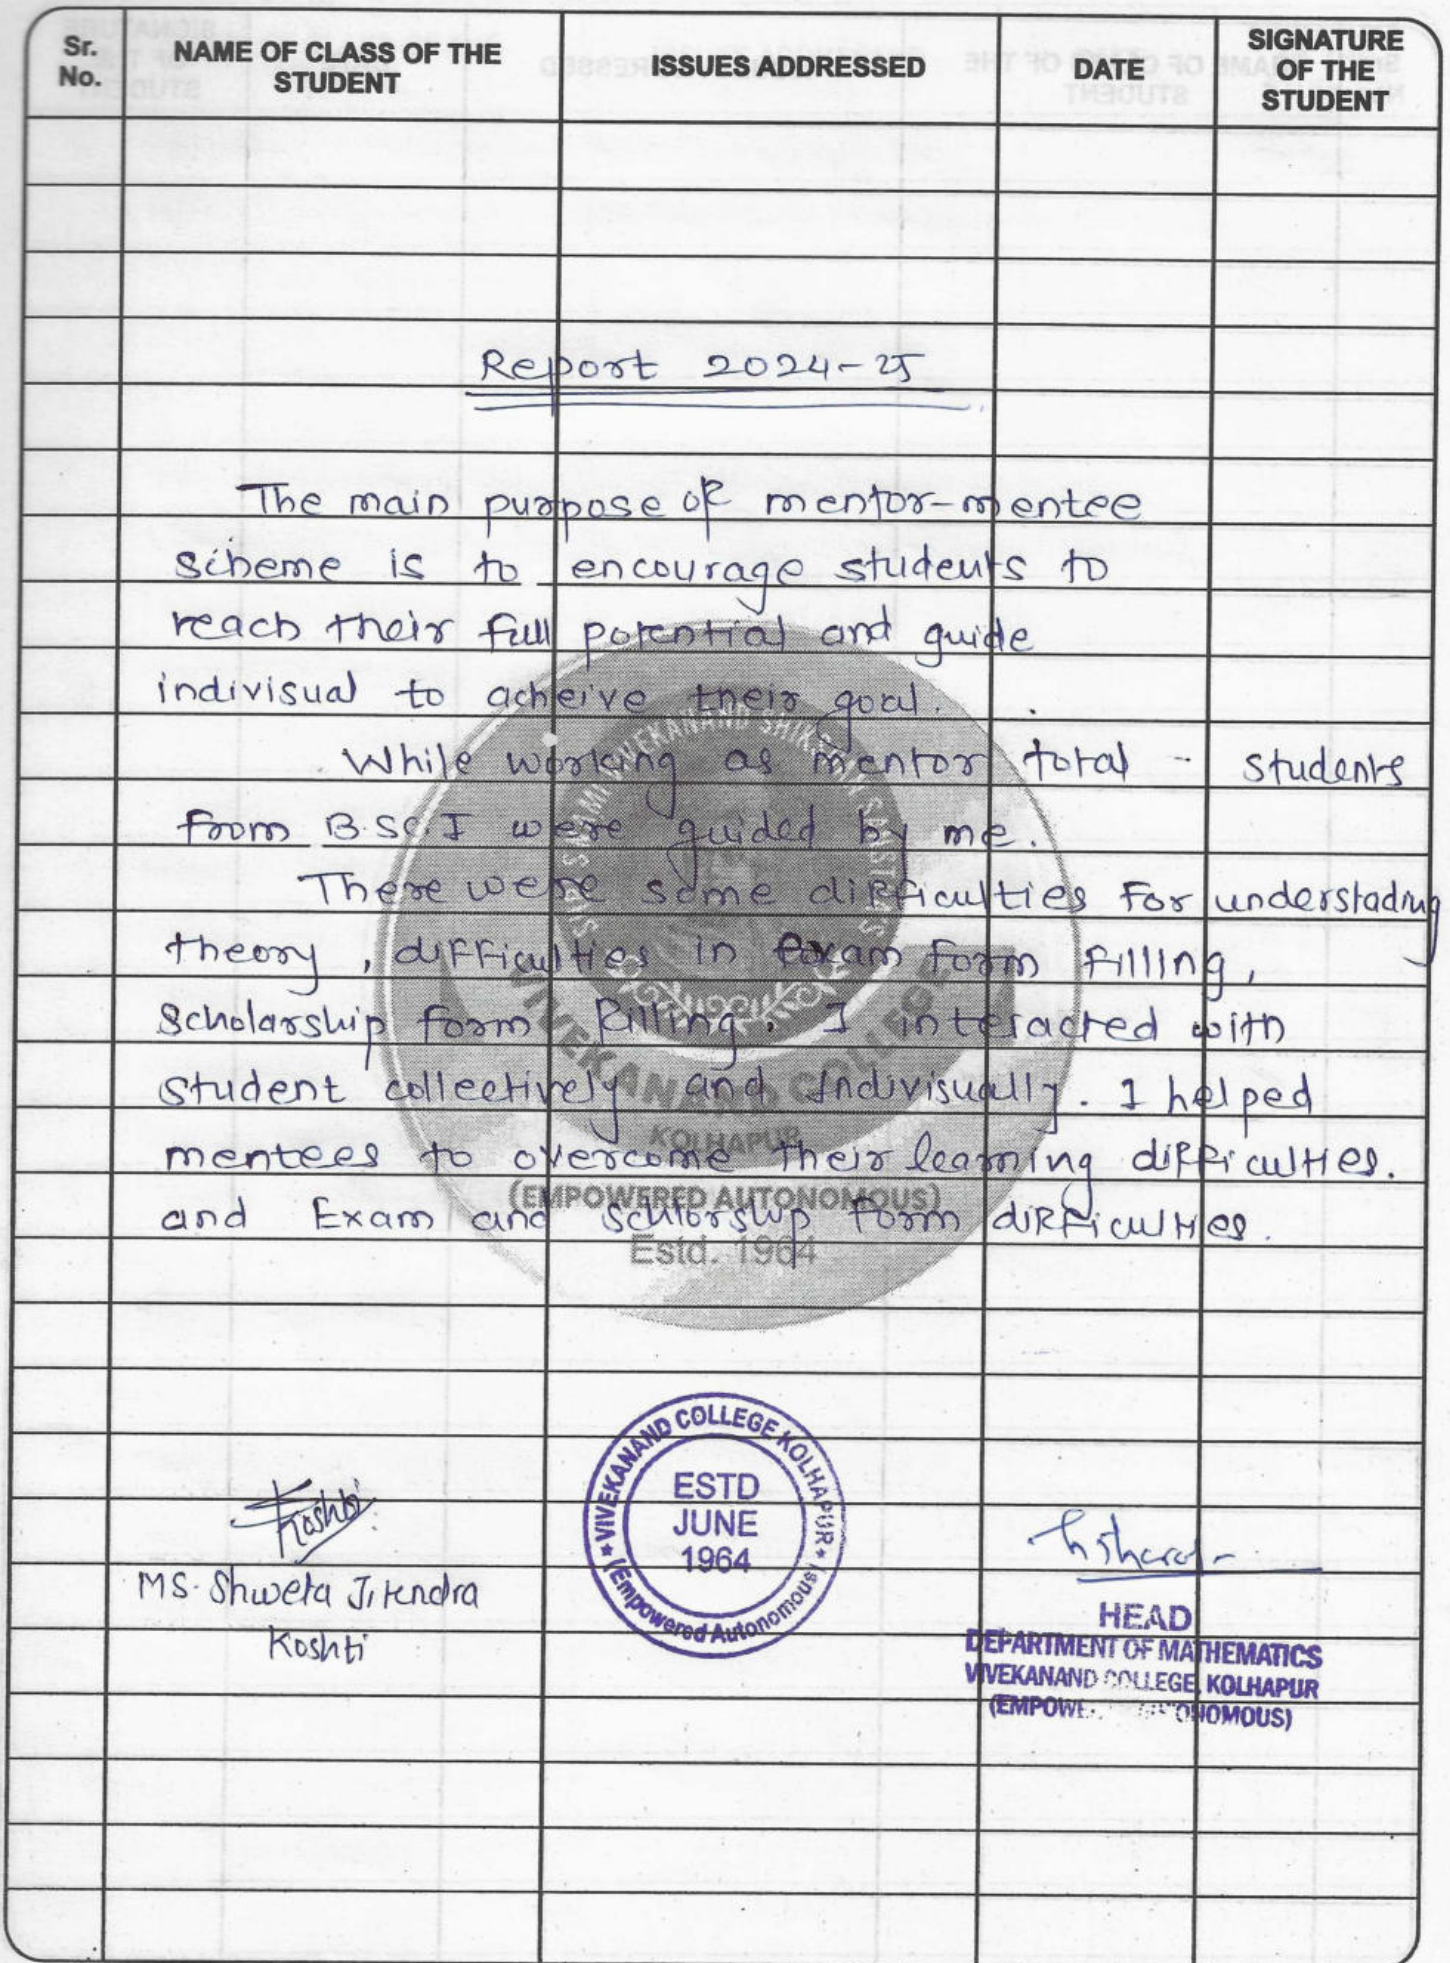 Sr. No.
NAME OF CLASS OF THE STUDENT
ISSUES ADDRESSED
DATE
SIGNATURE OF THE STUDENT
Report 2024-25
The main purpose of mentor-mentee
scheme is to encourage students to
reach their full potential and guide
indivisual to acheive their goal.
While working as mentor total - students
from B.SC.I were guided by me.
There were some difficulties for understading
theory, difficulties in exam form filling,
scholarship form filling. I interacted with
student collectively and indivisually. I helped
mentees to overcome their learning difficulties.
and Exam and schlorship form difficulties.
VIVEKANAND COLLEGE
KOLHAPUR
(EMPOWERED AUTONOMOUS)
Estd. 1964
Koshti
MS. Shweta Jitendra
Koshti
VIVEKANAND COLLEGE KOLHAPUR
(Empowered Autonomous)
ESTD
JUNE
1964
HEAD
DEPARTMENT OF MATHEMATICS
VIVEKANAND COLLEGE, KOLHAPUR
(EMPOWERED AUTONOMOUS)